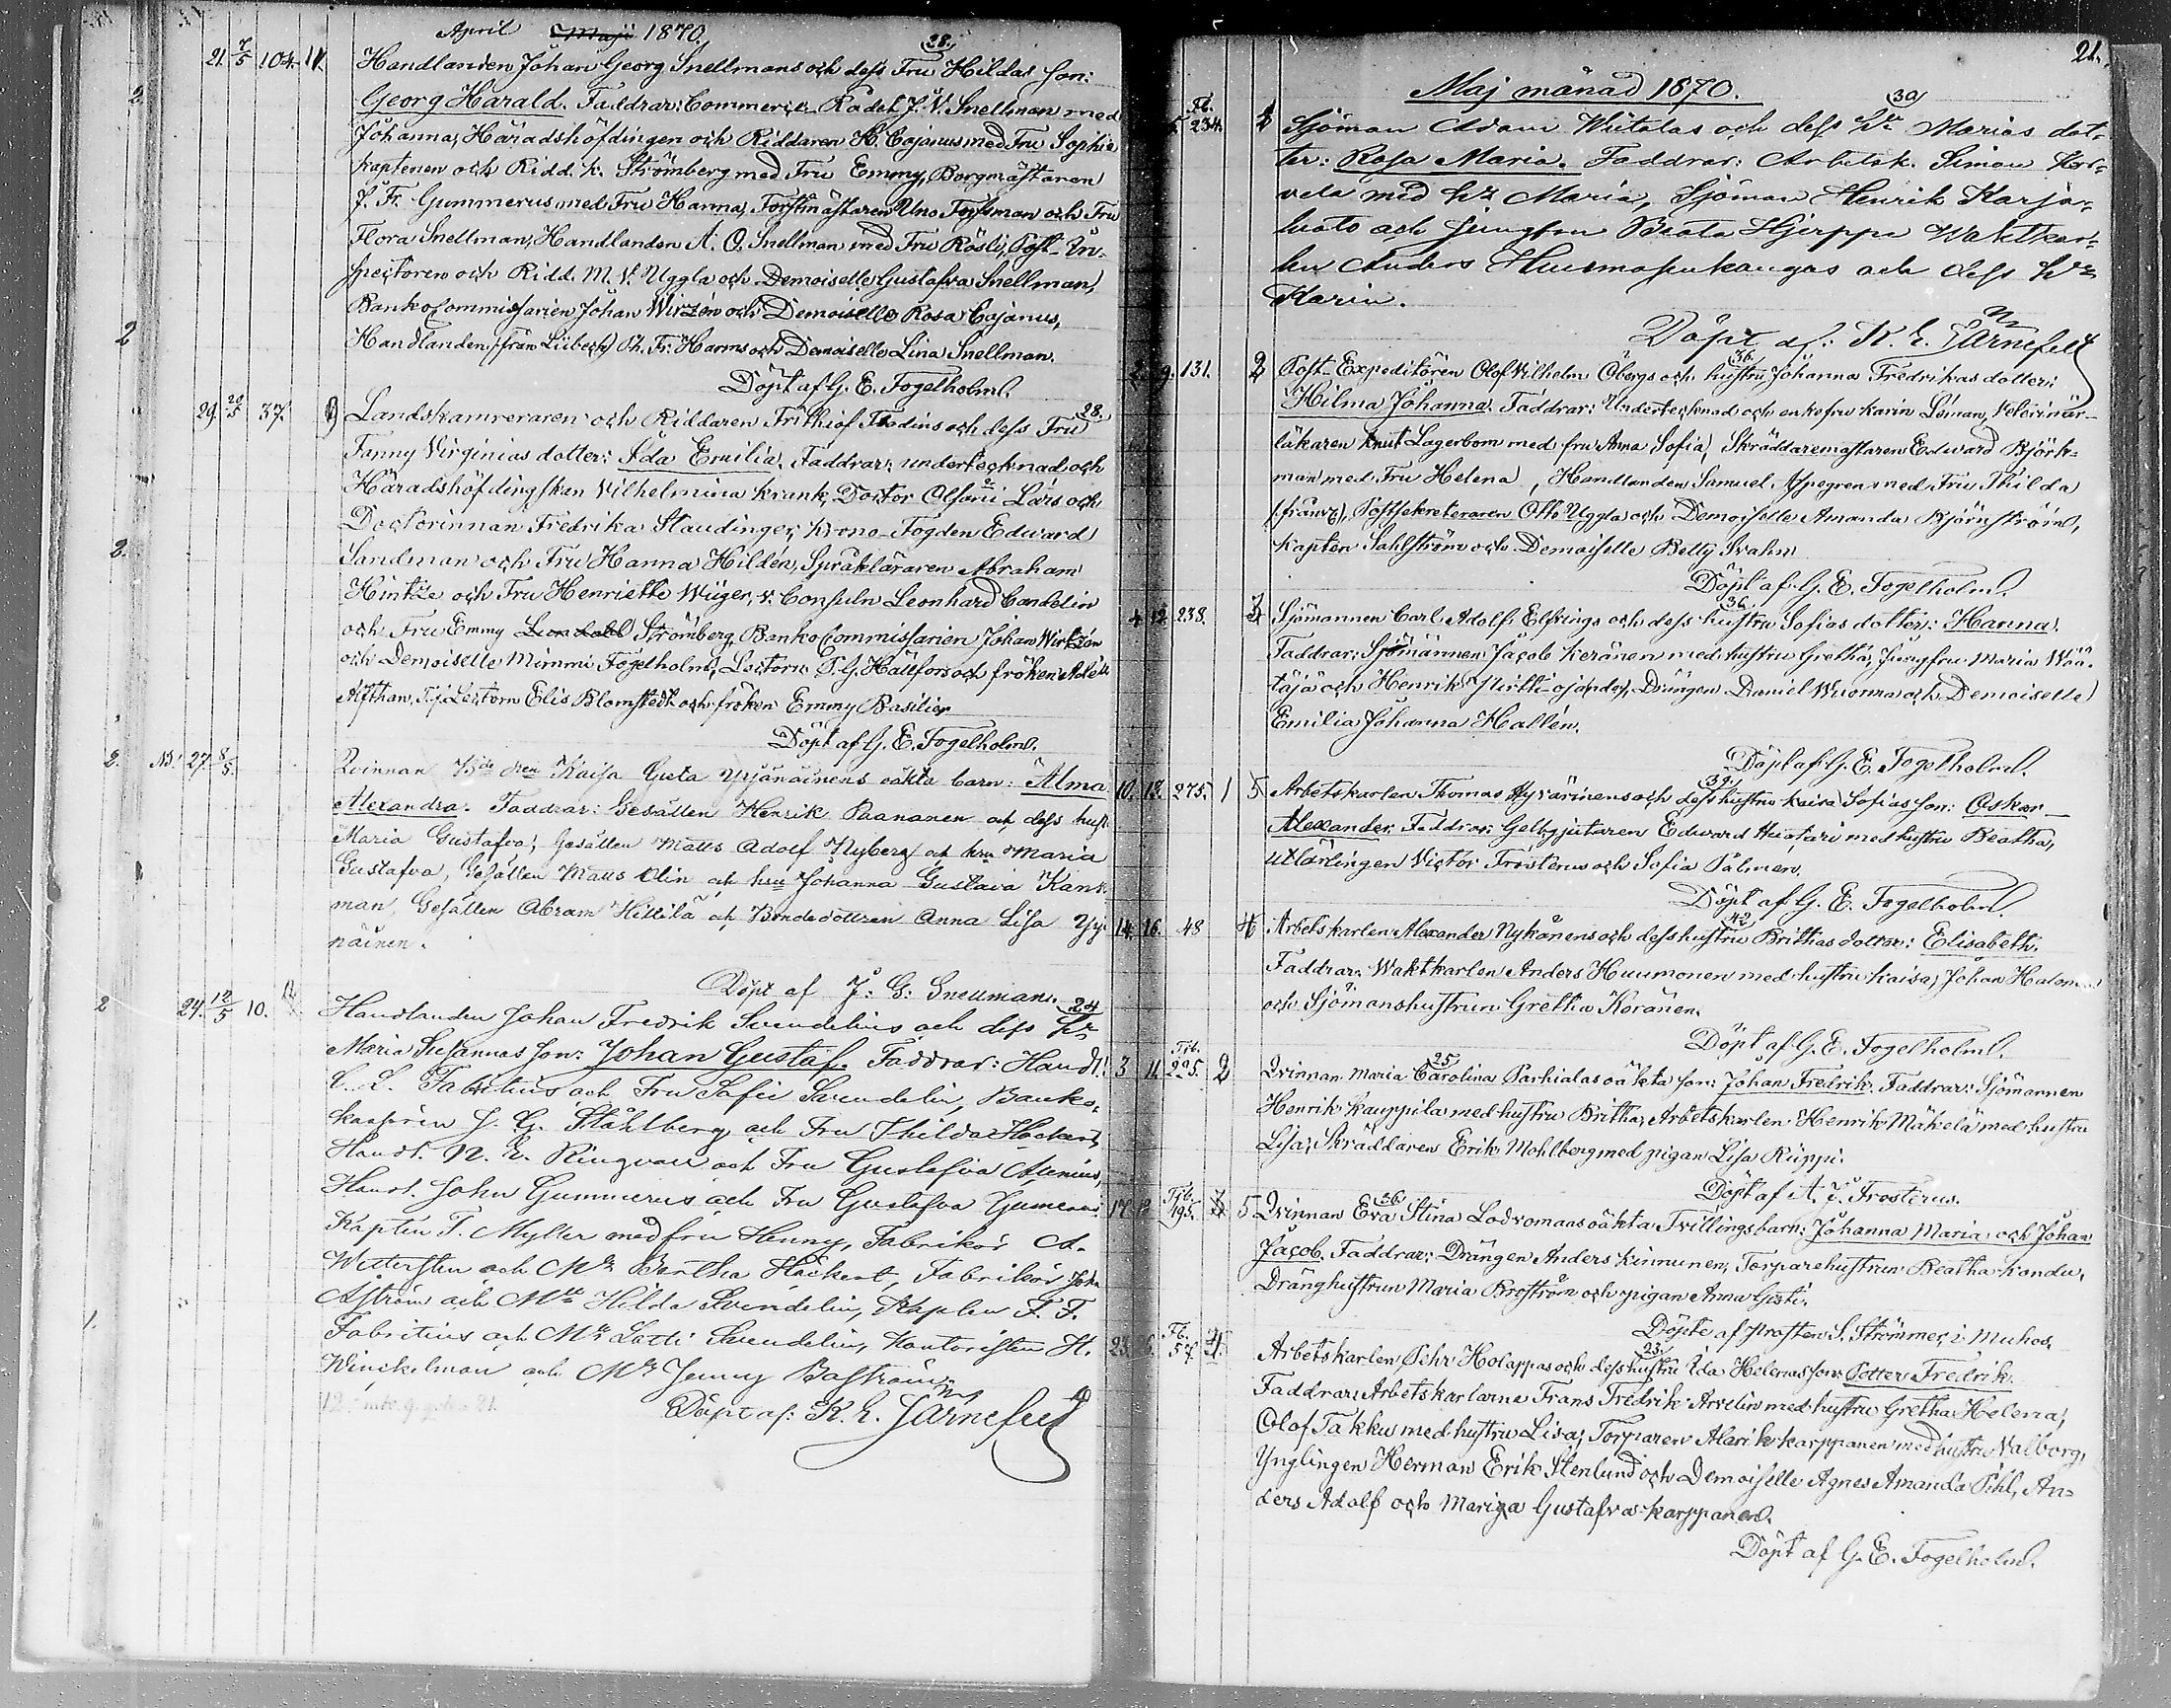 April Maji 1870.
21. 7/5 104. 11. Handlanden Johan Georg Snellmans och dess Fru Hildas 28. son:
Georg Harald. Faddrar: Commerce-Rådet J. V. Snellman med
Johanna, Häradshöfdingen och Riddaren H. Cajanus med Fru Sophia
Kaptenen och Ridd. K. Strömberg med Fru Emmy, Borgmästaren
J. Fr. Gummerus med Fru Hanna, Forstmästaren Uno Forssman och Fru
Flora Snellman, Handlanden A. O. Snellman med Fru Rosli, Post-In-
spectoren och Ridd. M. V. Uggla och Demoiselle Gustafva Snellman,
Banko Commissarien Johan Wirzén och Demoiselle Rosa Cajanus,
Handlanden (från Lübeck) Fr. Harms och Demoiselle Lina Snellman.
Döpt af G. E. Fogelholm.
29. 20/5 37. 9 Landskamreraren och Riddaren Frithiof Tladins och dess Fru 28.
Fanny Virginias dotter: Ida Emilia. Faddrar: undertecknad och
Häradshöfdingskan Vilhelmina Krank, Doctor Olfoni Lars och
Doctorinnan Fredrika Staudinger, Krono-Fogden Edward
Sandman och Fru Hanna Hildén, Språkläraren Abraham
Hintze och Fru Henriette Wüger, v. Consuln Leonhard Candelin
och Fru Emmy Strömberg, Banko Commissarien Johan Wirzén
och Demoiselle Mimmi Fogelholm, Lectorn P. G. Hällfors och fröken Adèle
Alfthan, T.j. Lectorn Elis Blomstedt och fröken Emmy Basilier
Döpt af G. E. Fogelholm.
27. 8/5. Qvinnan Bde dren Kaisa Gusta Yrjänäinens oäkta barn: Alma
Alexandra. Faddrar: Gesällen Henrik Paananen och dess hust.
Maria Gustafva, Gesällen Matts Adolf Nyberg och hru Maria
Gustafva, Gesällen Matts Olin och hru Johanna Gustava Kank-
man, Gesällen Abram Hillilä och Bondedottren Anna Lisa Yrj-
näinen.
Döpt af J. G. Snellman.
24. 12/5 10. 12 Handlanden Johan Fredrik Svendelius och dess Hu 24
Maria Susannas son: Johan Gustaf. Faddrar: Handl.
C. L. Fabritius och Fru Sofie Svendelin, Banko-
kassören J. G. Ståhlberg och Fru Thilda Häckert,
Handl. N. E. Ringvall och Fru Gustafva Alenius,
Handl. John Gummerus och Fru Gustafva Gumerus
Kapten T. Myller med fru Henny, Fabrikör A.
Wettersten och Mlle Bertha Häckert, Fabrikör John
Aström och Mlle Hilda Svendelin, Kapten F. F.
Fabritius och Mlle Lotti Svendelin, Kontoristen H.
Winckelman och Mlle Jenny Boström.
Döpt af: K. E. Järnefelt
21.
Maj månad 1870.
5 Tb. 234. 1 Sjöman Adam Wiitalas och dess Hu Marias 30 dot-
ter: Rosa Maria. Faddrar: Arbetsk. Simon Kor-
vela med Hu Maria, Sjöman Henrik Karja-
luoto och Jungfru Beata Hjerppe Waktkar-
len Anders Huumosenkangas och dess Hu
Karin.
Döpt af: K. E. Järnefelt
2. 9. 131. 2 Post-Expeditören Olof Vilhelm Öbergs och hustru 36. Johanna Fredrikas dotter:
Hilma Johanna. Faddrar: Undertecknad och enkefru Karin Löman, Veterinär-
läkaren Knut Lagerbom med fru Anna Sofia, Skräddaremästaren Edward Björk-
man med Fru Helena, Handlanden Samuel Aspegren med Fru Thilda
(frånv.), Postsekreteraren Otto Uggla och Demoiselle Amanda Björnström,
Kapten Sahlström och Demoiselle Betty Svahn
Döpt af G. E. Fogelholm.
4 12 238. 3 Sjömannen Carl Adolf Elfvings och dess hustru 36. Sofias dotter: Hanna.
Faddrar: Sjömännen Jacob Keränen med hustru Gretha, Jungfru Maria Wää-
täjä och Henrik Pirtti-oja(ndes), Drängen Daniel Wuorma och Demoiselle
Emilia Johanna Hallén.
Döpt af G. E. Fogelholm.
10. 12. 275. 1 5 Arbetskarlen Thomas Hyvärinens och dess hustru 39. Kaisa Sofias son: Oskar
Alexander. Faddrar: Gelbgjutaren Edward Huotari med hustru Beatha,
utlärlingen Victor Frosterus och Sofia Palmen.
Döpt af G. E. Fogelholm.
14. 16. 48 4 Arbetskarlen Alexander Nykänens och dess hustru 42 Brithas dotter: Elisabeth.
Faddrar: Waktkarlen Anders Huumonen med hustru Kaisa, Johan Halonen
och Sjömanshustrun Gretha Koranen.
Döpt af G. E. Fogelholm.
3 11 Tjb. 205. 2 Qvinnan Maria Carolina 25 Parhialas oäkta son: Johan Fredrik. Faddrar: Sjömannen
Henrik Kauppila med hustru Britha, Arbetskarlen Henrik Mäkelä med hustru
Lisa, Skräddaren Erik Mohlberg med pigan Lisa Riippi.
Döpt af A. J. Frosterus.
17 Tjb. 195. 5 Qvinnan Eva 36. Stina Lodvomans oäkta Tvillingsbarn: Johanna Maria och Johan
Jacob. Faddrar: Drängen Anders Kinnunen, Torparehustrun Beatha Kandu,
Dränghustrun Maria Broström och pigan Anna Gästi.
Döpte af Prosten S. Strömmer, i Muhos.
23. 26. Tb. 57. 4. Arbetskarlen Pehr Holappas och dess hustru 23. Ida Helenas son: Petter Fredrik.
Faddrar: Arbetskarlarne Frans Fredrik Arvelin med hustru Gretha Helena,
Olof Takku med hustru Lisa, Torparen Alarik Karppanen med hustru Valborg,
Ynglingen Herman Erik Stenlund och Demoiselle Agnes Amanda Pihl, An-
ders Adolf och Maria Gustafva Karppanen.
Döpt af G. E. Fogelholm.